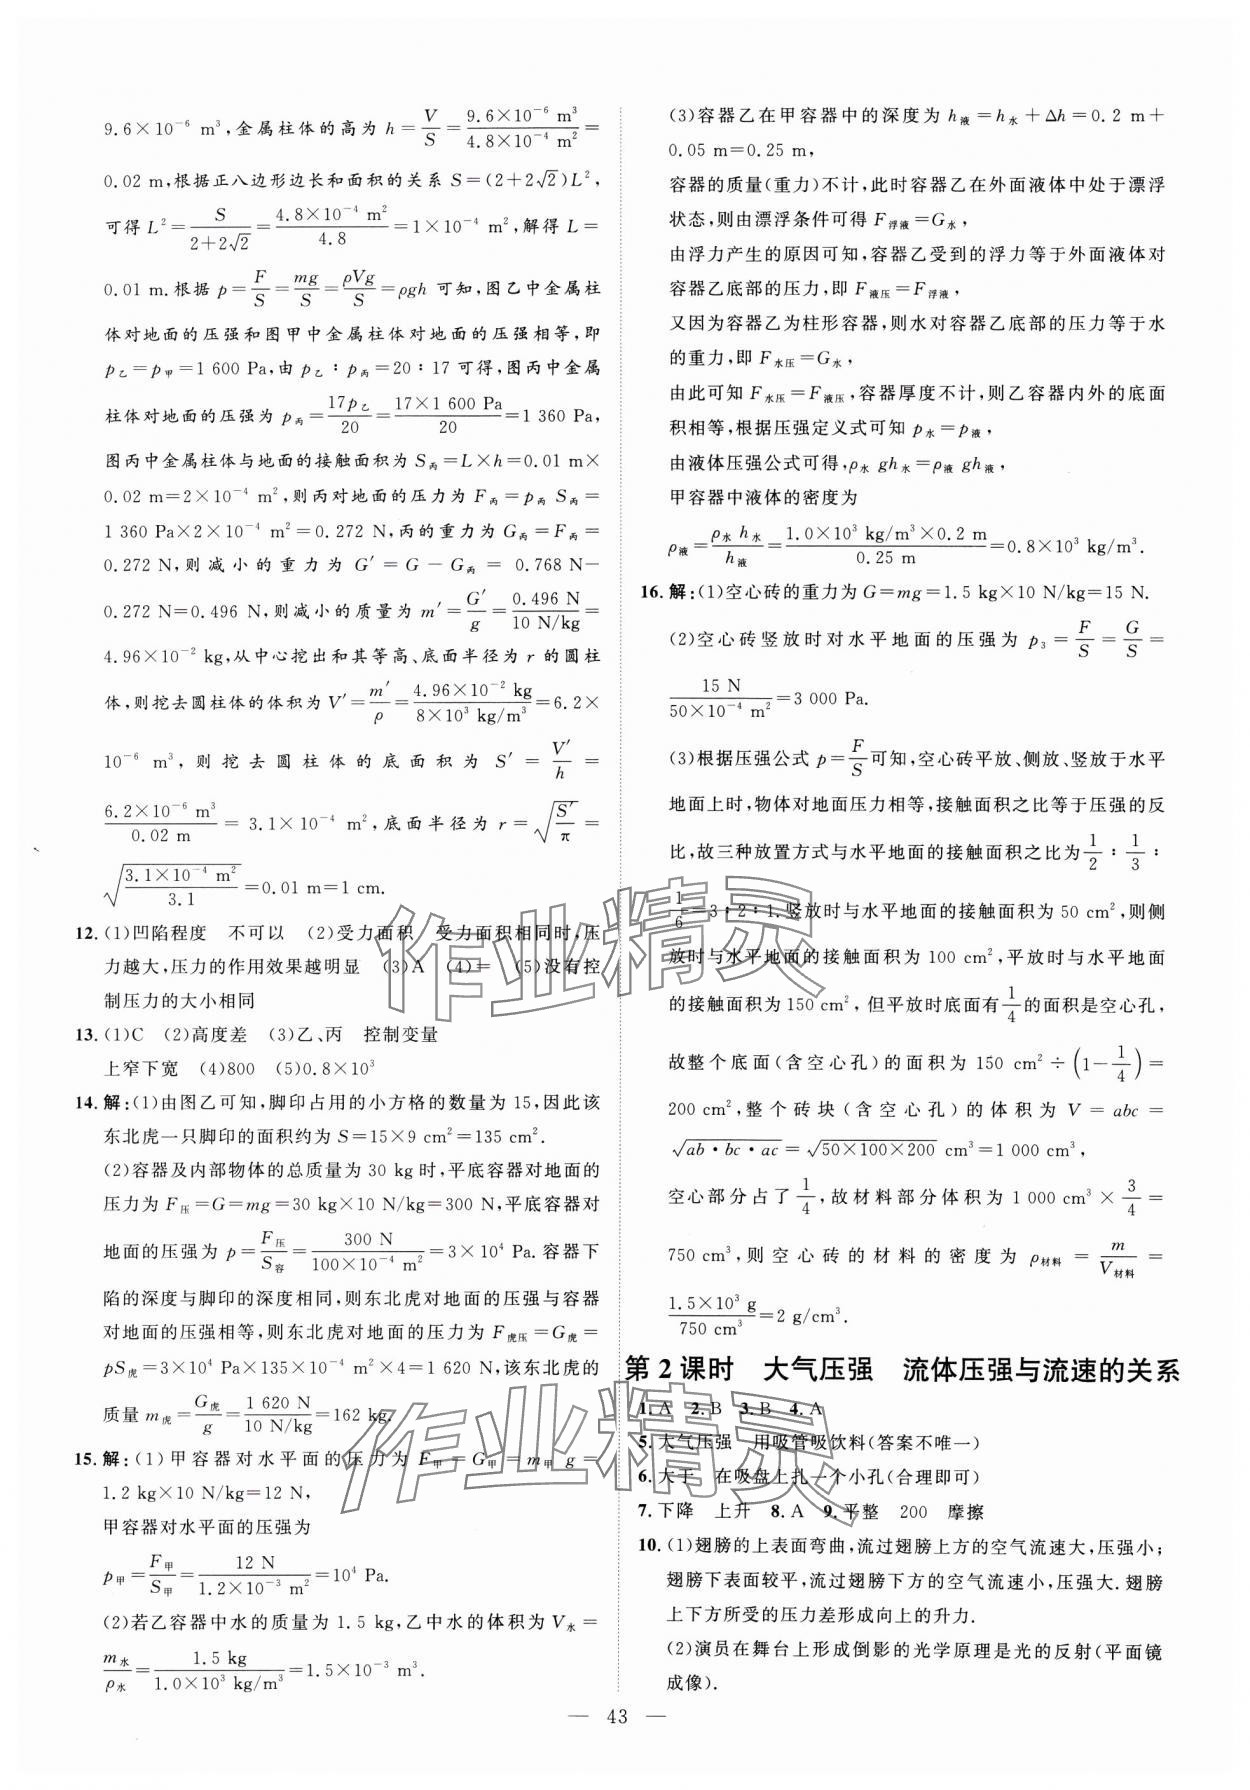 9.6×10⁻⁶ m³,金属柱体的高为 h=V/S=(9.6×10⁻⁶ m³)/(4.8×10⁻⁴ m²)=
0.02 m,根据正八边形边长和面积的关系 S=(2+2√2)L²,
可得 L²=S/(2+2√2)=(4.8×10⁻⁴ m²)/4.8=1×10⁻⁴ m²,解得 L=
0.01 m.根据 p=F/S=mg/S=ρVg/S=ρgh 可知,图乙中金属柱
体对地面的压强和图甲中金属柱体对地面的压强相等,即
p乙=p甲=1 600 Pa,由 p乙∶p丙=20∶17 可得,图丙中金属
柱体对地面的压强为 p丙=17p乙/20=(17×1 600 Pa)/20=1 360 Pa,
图丙中金属柱体与地面的接触面积为 S丙=L×h=0.01 m×
0.02 m=2×10⁻⁴ m²,则丙对地面的压力为 F丙=p丙 S丙=
1 360 Pa×2×10⁻⁴ m²=0.272 N,丙的重力为 G丙=F丙=
0.272 N,则减小的重力为 G′=G-G丙=0.768 N-
0.272 N=0.496 N,则减小的质量为 m′=G′/g=(0.496 N)/(10 N/kg)=
4.96×10⁻² kg,从中心挖出和其等高、底面半径为 r 的圆柱
体,则挖去圆柱体的体积为 V′=m′/ρ=(4.96×10⁻² kg)/(8×10³ kg/m³)=6.2×
10⁻⁶ m³,则挖去圆柱体的底面积为 S′=V′/h=
(6.2×10⁻⁶ m³)/(0.02 m)=3.1×10⁻⁴ m²,底面半径为 r=√(S′/π)=
√((3.1×10⁻⁴ m²)/3.1)=0.01 m=1 cm.
12.(1)凹陷程度 不可以 (2)受力面积 受力面积相同时,压
力越大,压力的作用效果越明显 (3)A (4)= (5)没有控
制压力的大小相同
13.(1)C (2)高度差 (3)乙、丙 控制变量
上窄下宽 (4)800 (5)0.8×10³
14.解:(1)由图乙可知,脚印占用的小方格的数量为 15,因此该
东北虎一只脚印的面积约为 S=15×9 cm²=135 cm².
(2)容器及内部物体的总质量为 30 kg 时,平底容器对地面的
压力为 F压=G=mg=30 kg×10 N/kg=300 N,平底容器对
地面的压强为 p=F压/S容=(300 N)/(100×10⁻⁴ m²)=3×10⁴ Pa.容器下
陷的深度与脚印的深度相同,则东北虎对地面的压强与容器
对地面的压强相等,则东北虎对地面的压力为 F虎压=G虎=
pS虎=3×10⁴ Pa×135×10⁻⁴ m²×4=1 620 N,该东北虎的
质量 m虎=G虎/g=(1 620 N)/(10 N/kg)=162 kg.
15.解:(1)甲容器对水平面的压力为 F甲=G甲=m甲 g=
1.2 kg×10 N/kg=12 N,
甲容器对水平面的压强为
p甲=F甲/S甲=(12 N)/(1.2×10⁻³ m²)=10⁴ Pa.
(2)若乙容器中水的质量为 1.5 kg,乙中水的体积为 V水=
m水/ρ水=(1.5 kg)/(1.0×10³ kg/m³)=1.5×10⁻³ m³.
(3)容器乙在甲容器中的深度为 h液=h水+Δh=0.2 m+
0.05 m=0.25 m,
容器的质量(重力)不计,此时容器乙在外面液体中处于漂浮
状态,则由漂浮条件可得 F浮液=G水,
由浮力产生的原因可知,容器乙受到的浮力等于外面液体对
容器乙底部的压力,即 F液压=F浮液,
又因为容器乙为柱形容器,则水对容器乙底部的压力等于水
的重力,即 F水压=G水,
由此可知 F水压=F液压,容器厚度不计,则乙容器内外的底面
积相等,根据压强定义式可知 p水=p液,
由液体压强公式可得,ρ水 gh水=ρ液 gh液,
甲容器中液体的密度为
ρ液=ρ水 h水/h液=(1.0×10³ kg/m³×0.2 m)/(0.25 m)=0.8×10³ kg/m³.
16.解:(1)空心砖的重力为 G=mg=1.5 kg×10 N/kg=15 N.
(2)空心砖竖放时对水平地面的压强为 p₃=F/S=G/S=
(15 N)/(50×10⁻⁴ m²)=3 000 Pa.
(3)根据压强公式 p=F/S可知,空心砖平放、侧放、竖放于水平
地面上时,物体对地面压力相等,接触面积之比等于压强的反
比,故三种放置方式与水平地面的接触面积之比为1/2∶1/3∶
1/6=3∶2∶1.竖放时与水平地面的接触面积为 50 cm²,则侧
放时与水平地面的接触面积为 100 cm²,平放时与水平地面
的接触面积为 150 cm²,但平放时底面有1/4的面积是空心孔,
故整个底面(含空心孔)的面积为 150 cm²÷(1-1/4)=
200 cm²,整个砖块(含空心孔)的体积为 V=abc=
√(ab·bc·ac)=√(50×100×200) cm³=1 000 cm³,
空心部分占了1/4,故材料部分体积为 1 000 cm³×3/4=
750 cm³,则空心砖的材料的密度为 ρ材料=m/V材料=
(1.5×10³ g)/(750 cm³)=2 g/cm³.
第 2 课时 大气压强 流体压强与流速的关系
1.A 2.B 3.B 4.A
5.大气压强 用吸管吸饮料(答案不唯一)
6.大于 在吸盘上扎一个小孔(合理即可)
7.下降 上升 8.A 9.平整 200 摩擦
10.(1)翅膀的上表面弯曲,流过翅膀上方的空气流速大,压强小;
翅膀下表面较平,流过翅膀下方的空气流速小,压强大.翅膀
上下方所受的压力差形成向上的升力.
(2)演员在舞台上形成倒影的光学原理是光的反射(平面镜
成像).
— 43 —
作业精灵
作业精灵